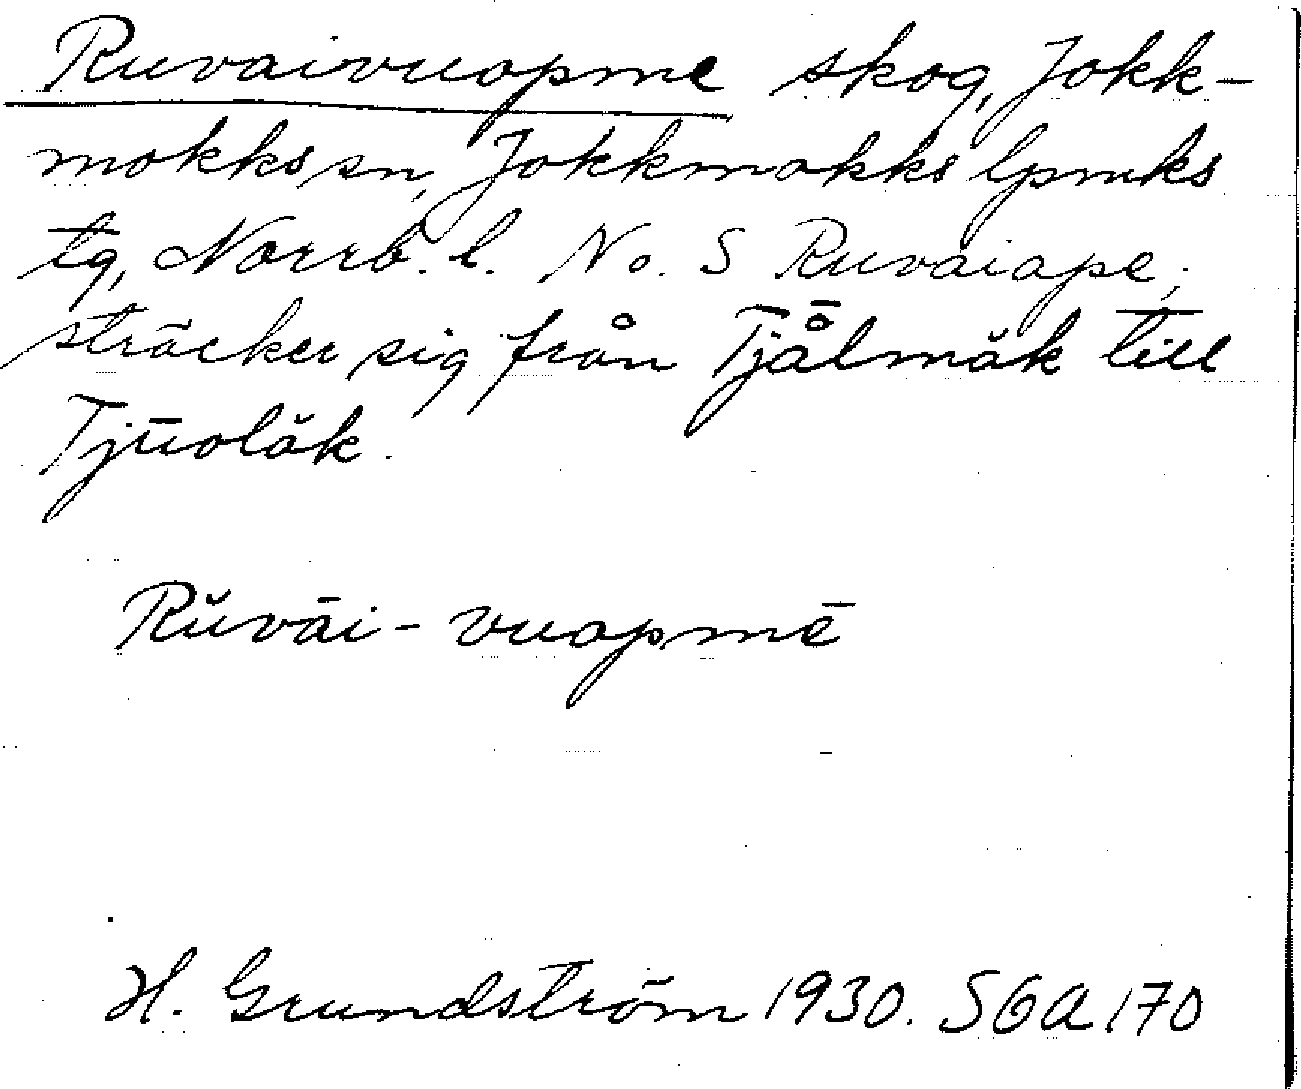 Ruvaivuopme skog, Jokk-
mokks sn, Jokkmokks lpmks
tg, Norrb. l. No. S Ruvaiape;
sträcker sig från Tjå̄lmăk till
Tjūolăk.
Rŭvāi-vuopmē
H. Grundström 1930. SGA 170